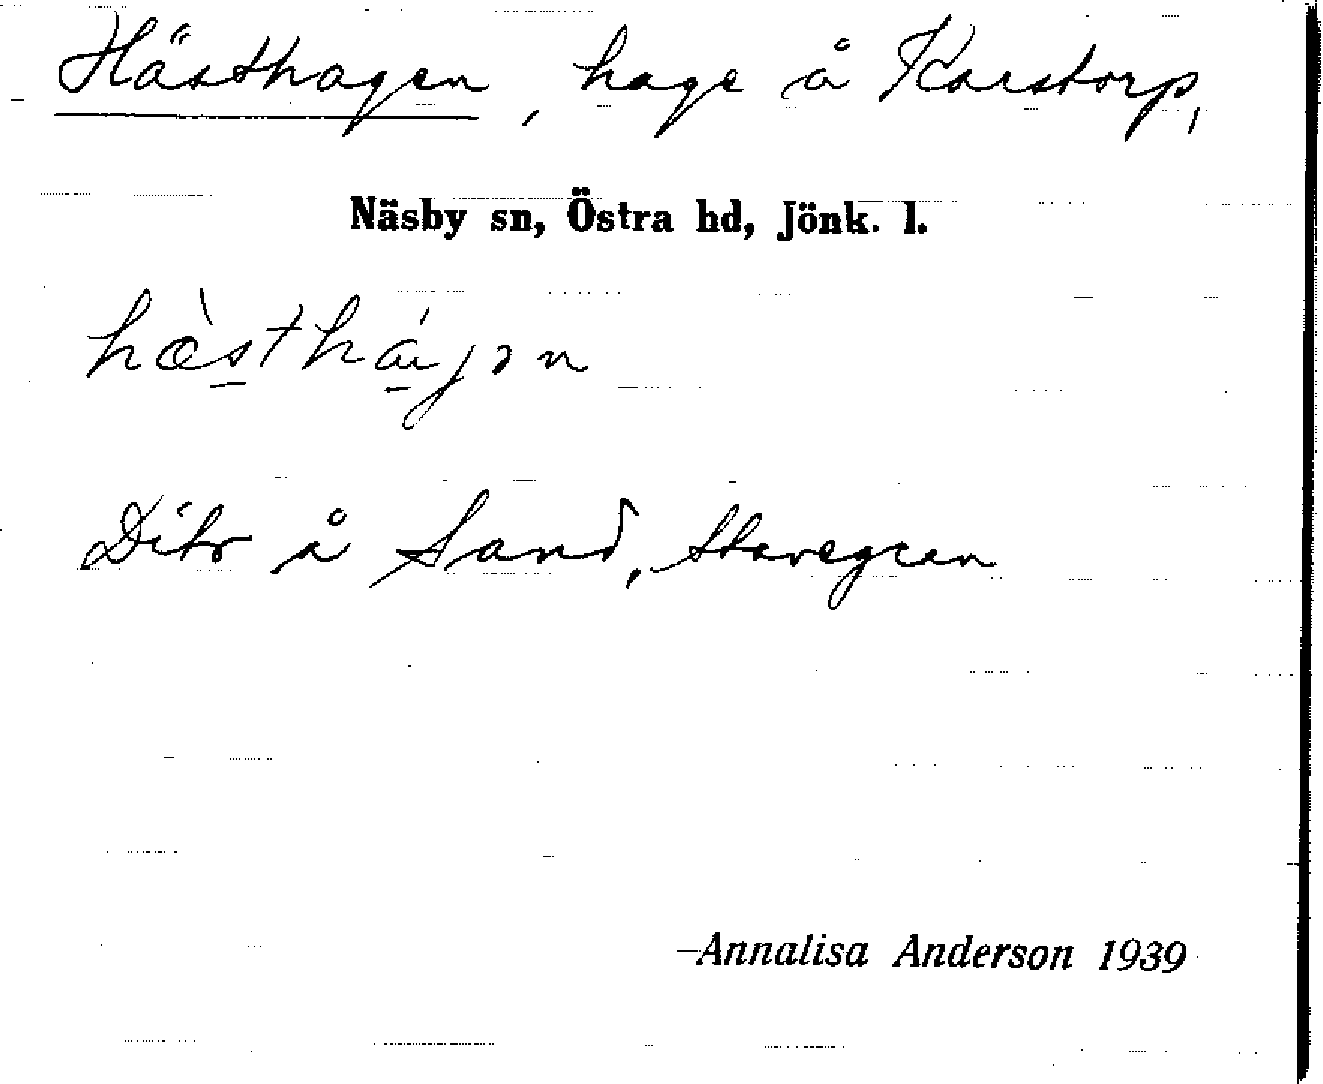 Hästhagen, hage å Karstorp,
Näsby sn, Östra hd, Jönk. l.
hæ̀sthágən
Dito å Sand, Stavegran
Annalisa Anderson 1939